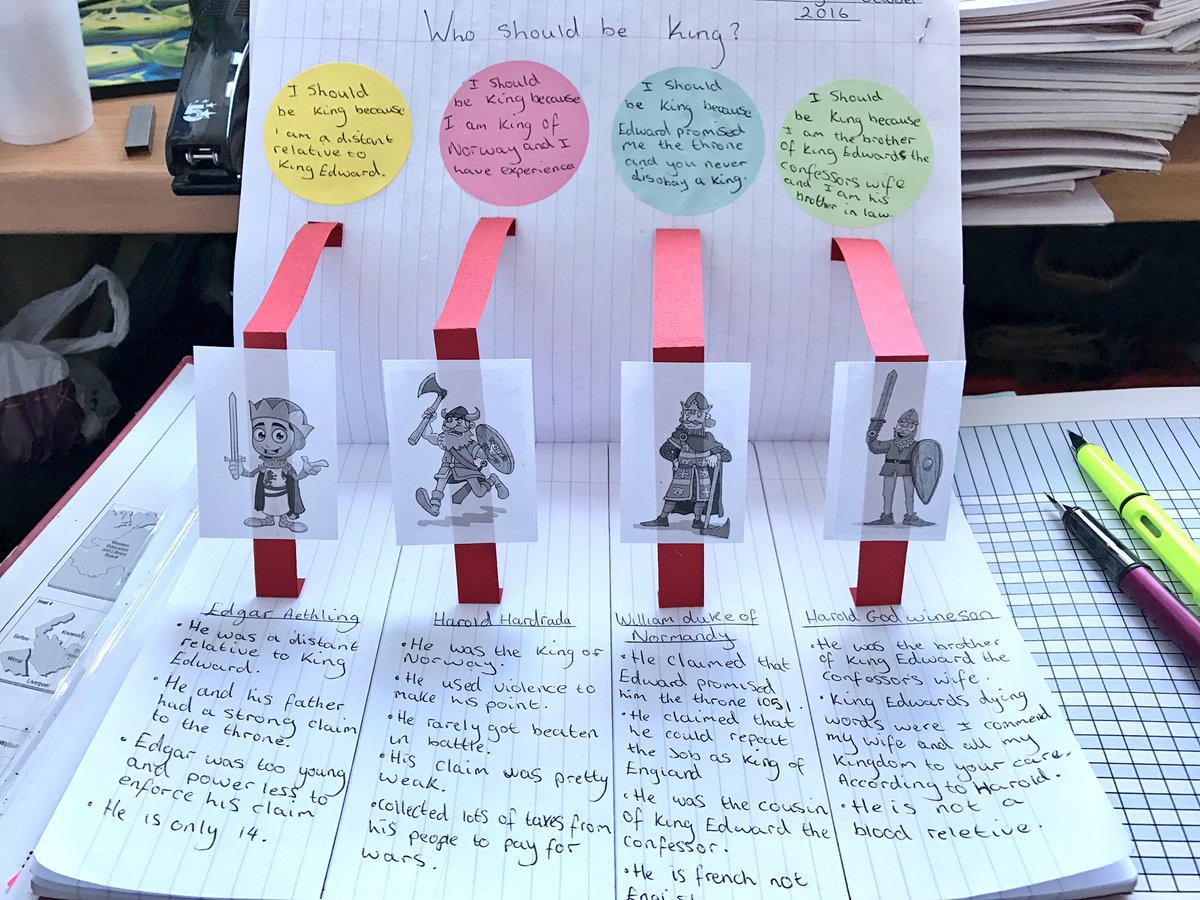 2016
Who should be King?
I should
be King because
i am a distant
relative to
King Edward.
I should
be King because
I am King of
Norway and I
have experience
I should
be King because
Edward promised
me the throne
and you never
disobay a king.
I should
be King because
I am the brother
of King Edwards the
confessors wife
and I am his
brother in law.
Edgar Aethling
• He was a distant
relative to King
Edward.
• He and his father
had a strong claim
to the throne.
• Edgar was too young
and powerless to
enforce his claim
• He is only 14.
Harold Hardrada
• He was the King of
Norway.
• He used violence to
make his point.
• He rarely got beaten
in battle.
• His claim was pretty
weak.
• collected lots of taxes from
his people to pay for
wars.
William duke of
Normandy
• He claimed that
Edward promised
him the throne 1051.
• He claimed that
he could repeat
the job as King of
England
• He was the cousin
of King Edward the
confessor.
• He is french not
Harold Godwineson
• He was the brother
of King Edward the
confessors wife.
• King Edwards dying
words were I commend
my wife and all my
Kingdom to your care.
According to Harold.
• He is not a
blood reletive.
Western
Education
and Library
Board
Inset 4
Sefton
Knowsley
Wirral
Liverpool
5